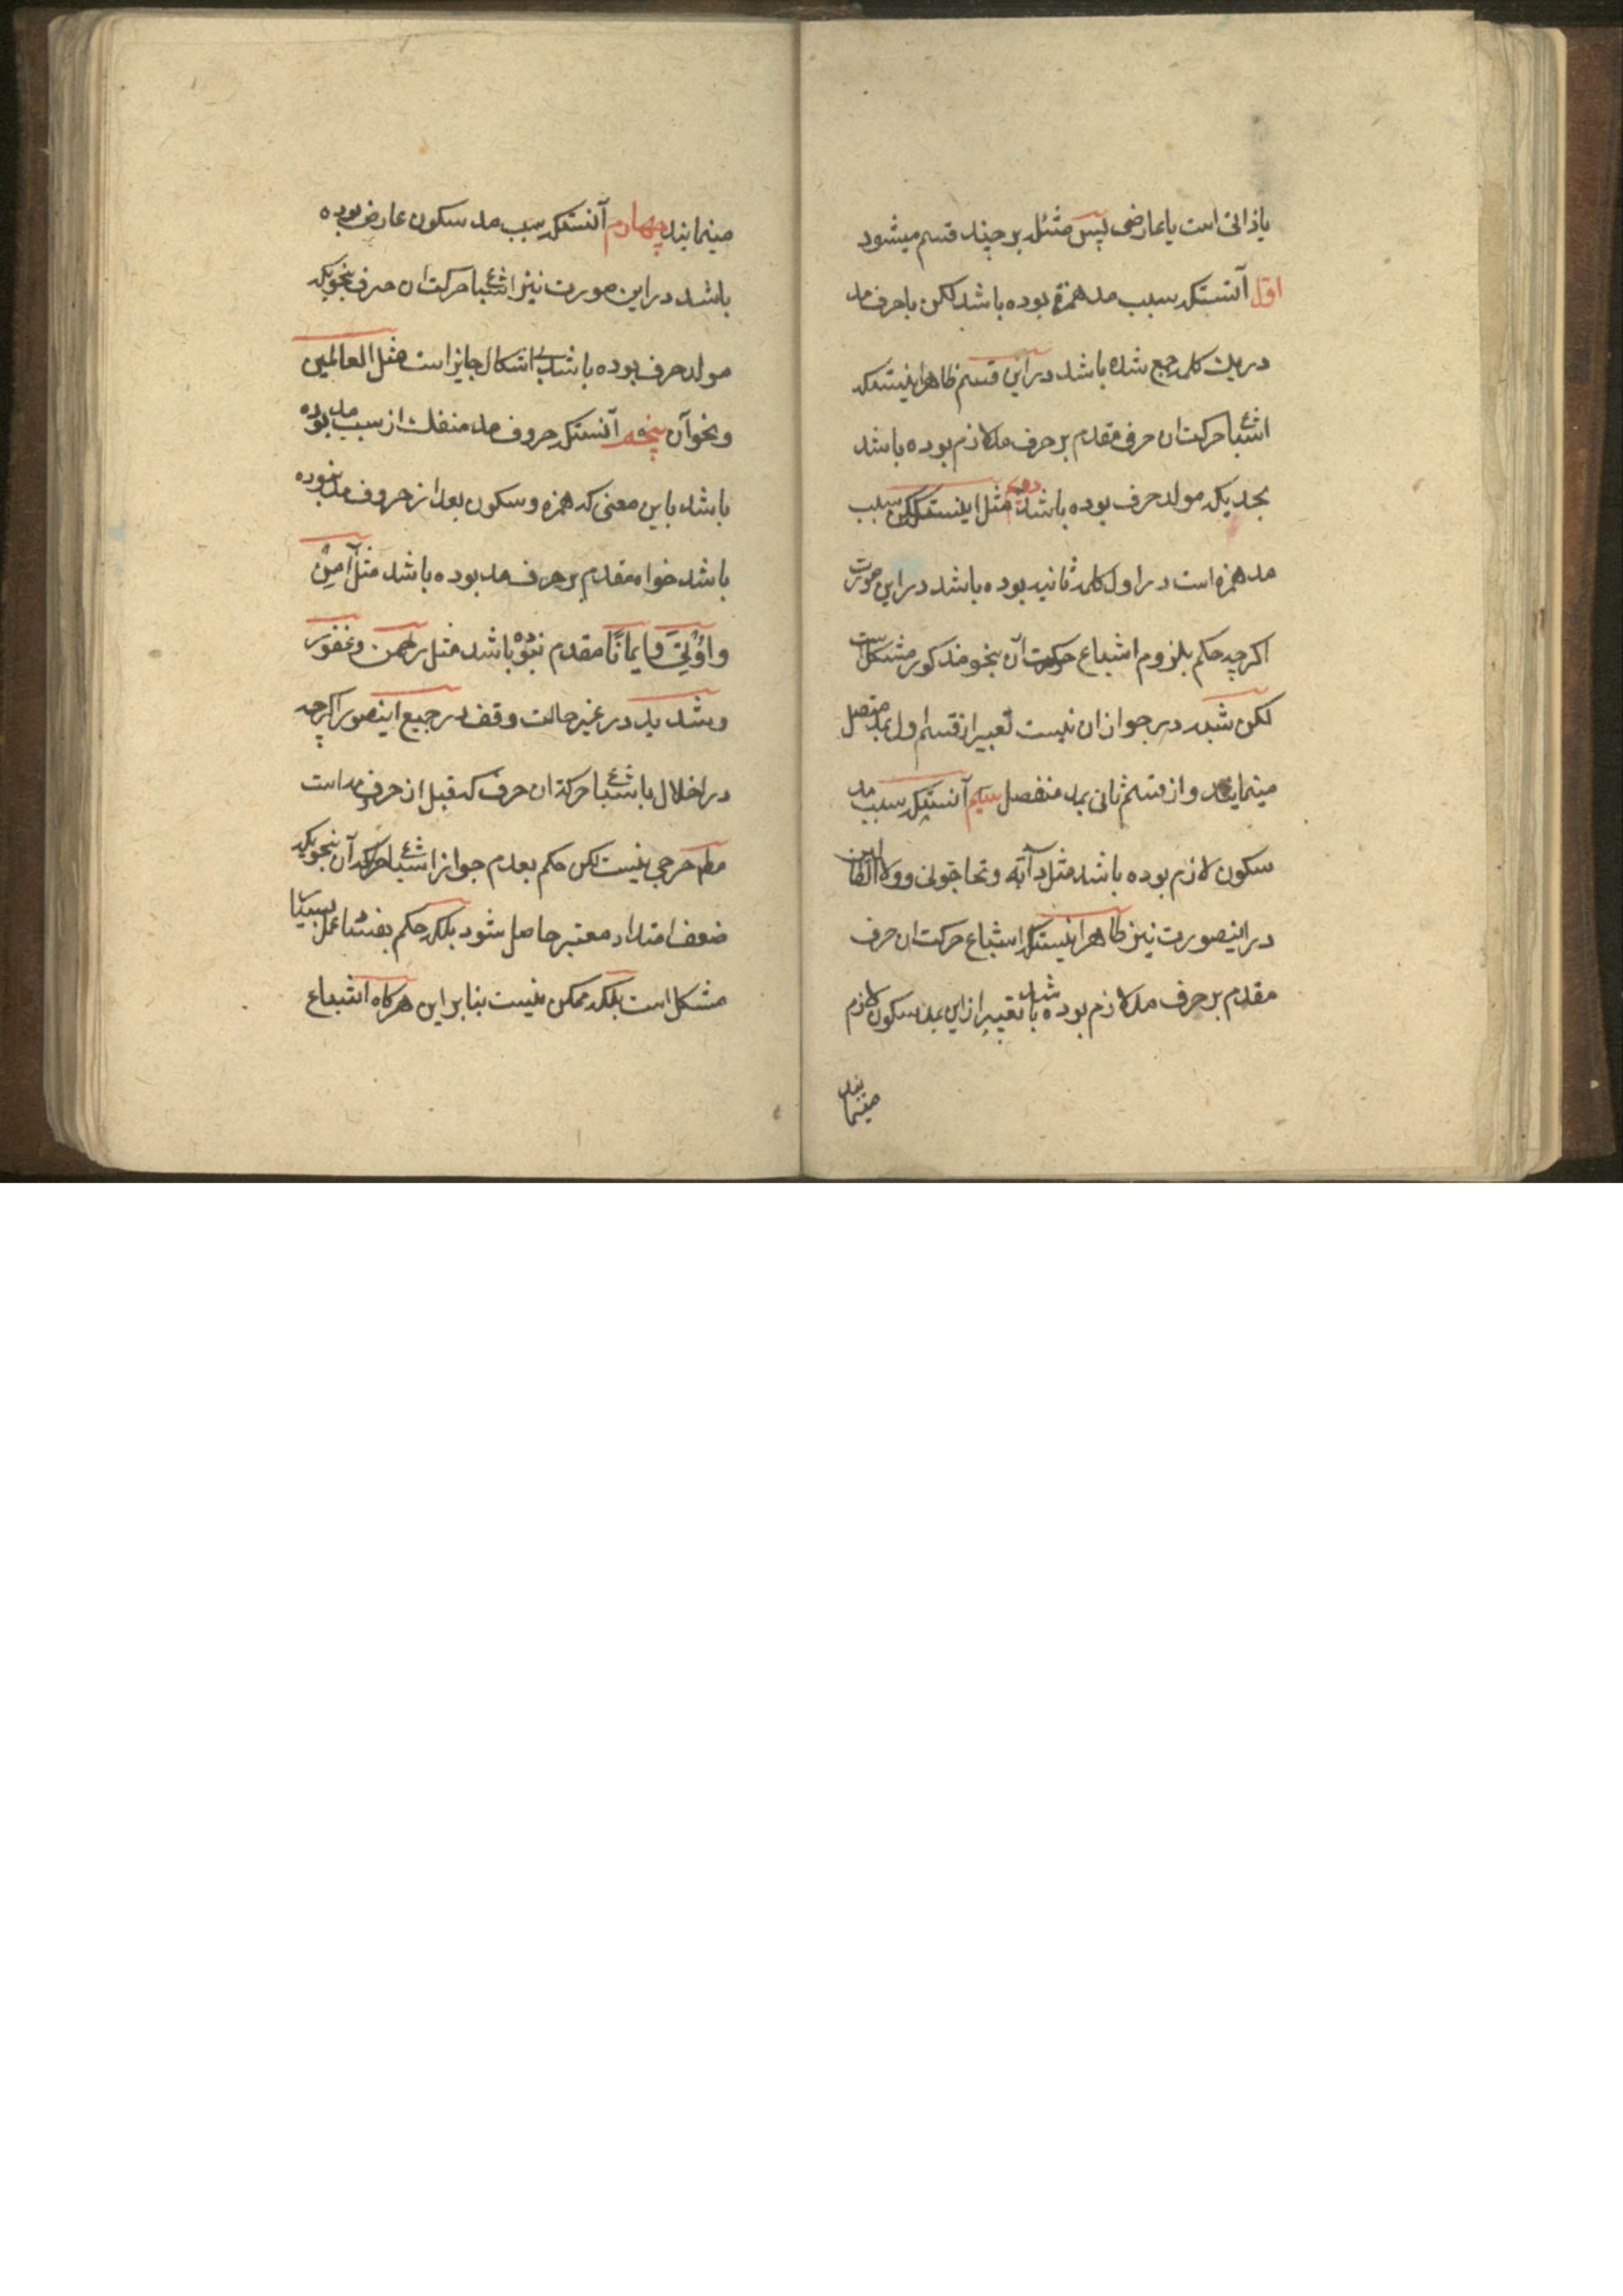 یا ذاتی است یا عارضی پس مسئله بر چند قسم میشود
اول آنستکه سبب مد همزه بوده باشد لکن با حرف مد
در یک کلمه جمع شده باشد در این قسم ظاهر اینستکه
اشباع حرکت ان حرف مقدم بر حرف مد لازم بوده باشد
بحدیکه مولد حرف بوده باشد دویم مثل اینستکه لکن سبب
مد همزه است در اول کلمه ثانیه بوده باشد در این صورت
اکرچه حکم بلزوم اشباع حرکت آن بنحو مذکور مشکل است
لکن شبهه در جواز ان نیست تعبیر از قسم اول بمد متصل
مینمایند و از قسم ثانی بمد منفصل سیم آنستکه سبب مد
سکون لازم بوده باشد مثل دآبّه و تحاجّونی و ولا الضالین
در اینصورت نیز ظاهر اینستکه اشباع حرکت ان حرف
مقدم بر حرف مد لازم بوده باشد تعبیر از این بمد سکون لازم
مینمایند
مینمایند چهارم آنستکه سبب مد سکون عارض بوده
باشد در این صورت نیز اشباع حرکت ان حرف بنحویکه
مولد حرف بوده باشد بی اشکال جایز است مثل العالمین
و نحو آن پنجم آنستکه حروف مد منفک از سبب مد بوده
باشد باین معنی که همزه و سکون بعد از حروف مد نبوده
باشد خواه مقدم بر حرف مد بوده باشد مثل آمن
و اوتی و ایمانًا مقدم نبوده باشد مثل رحمن و غفور
و شدید در غیر حالت وقف در جمیع اینصور اکرچه
در اخلال باشباع حرکة ان حرف که قبل از حرف مد است
مط حرجی نیست لکن حکم بعدم جواز اشباع حرکه آن بنحویکه
ضعف امتداد معتبر حاصل شود بلکه حکم بفساد عمل بسببها
مشکل است بلکه ممکن نیست بنابر این هرکاه اشباع